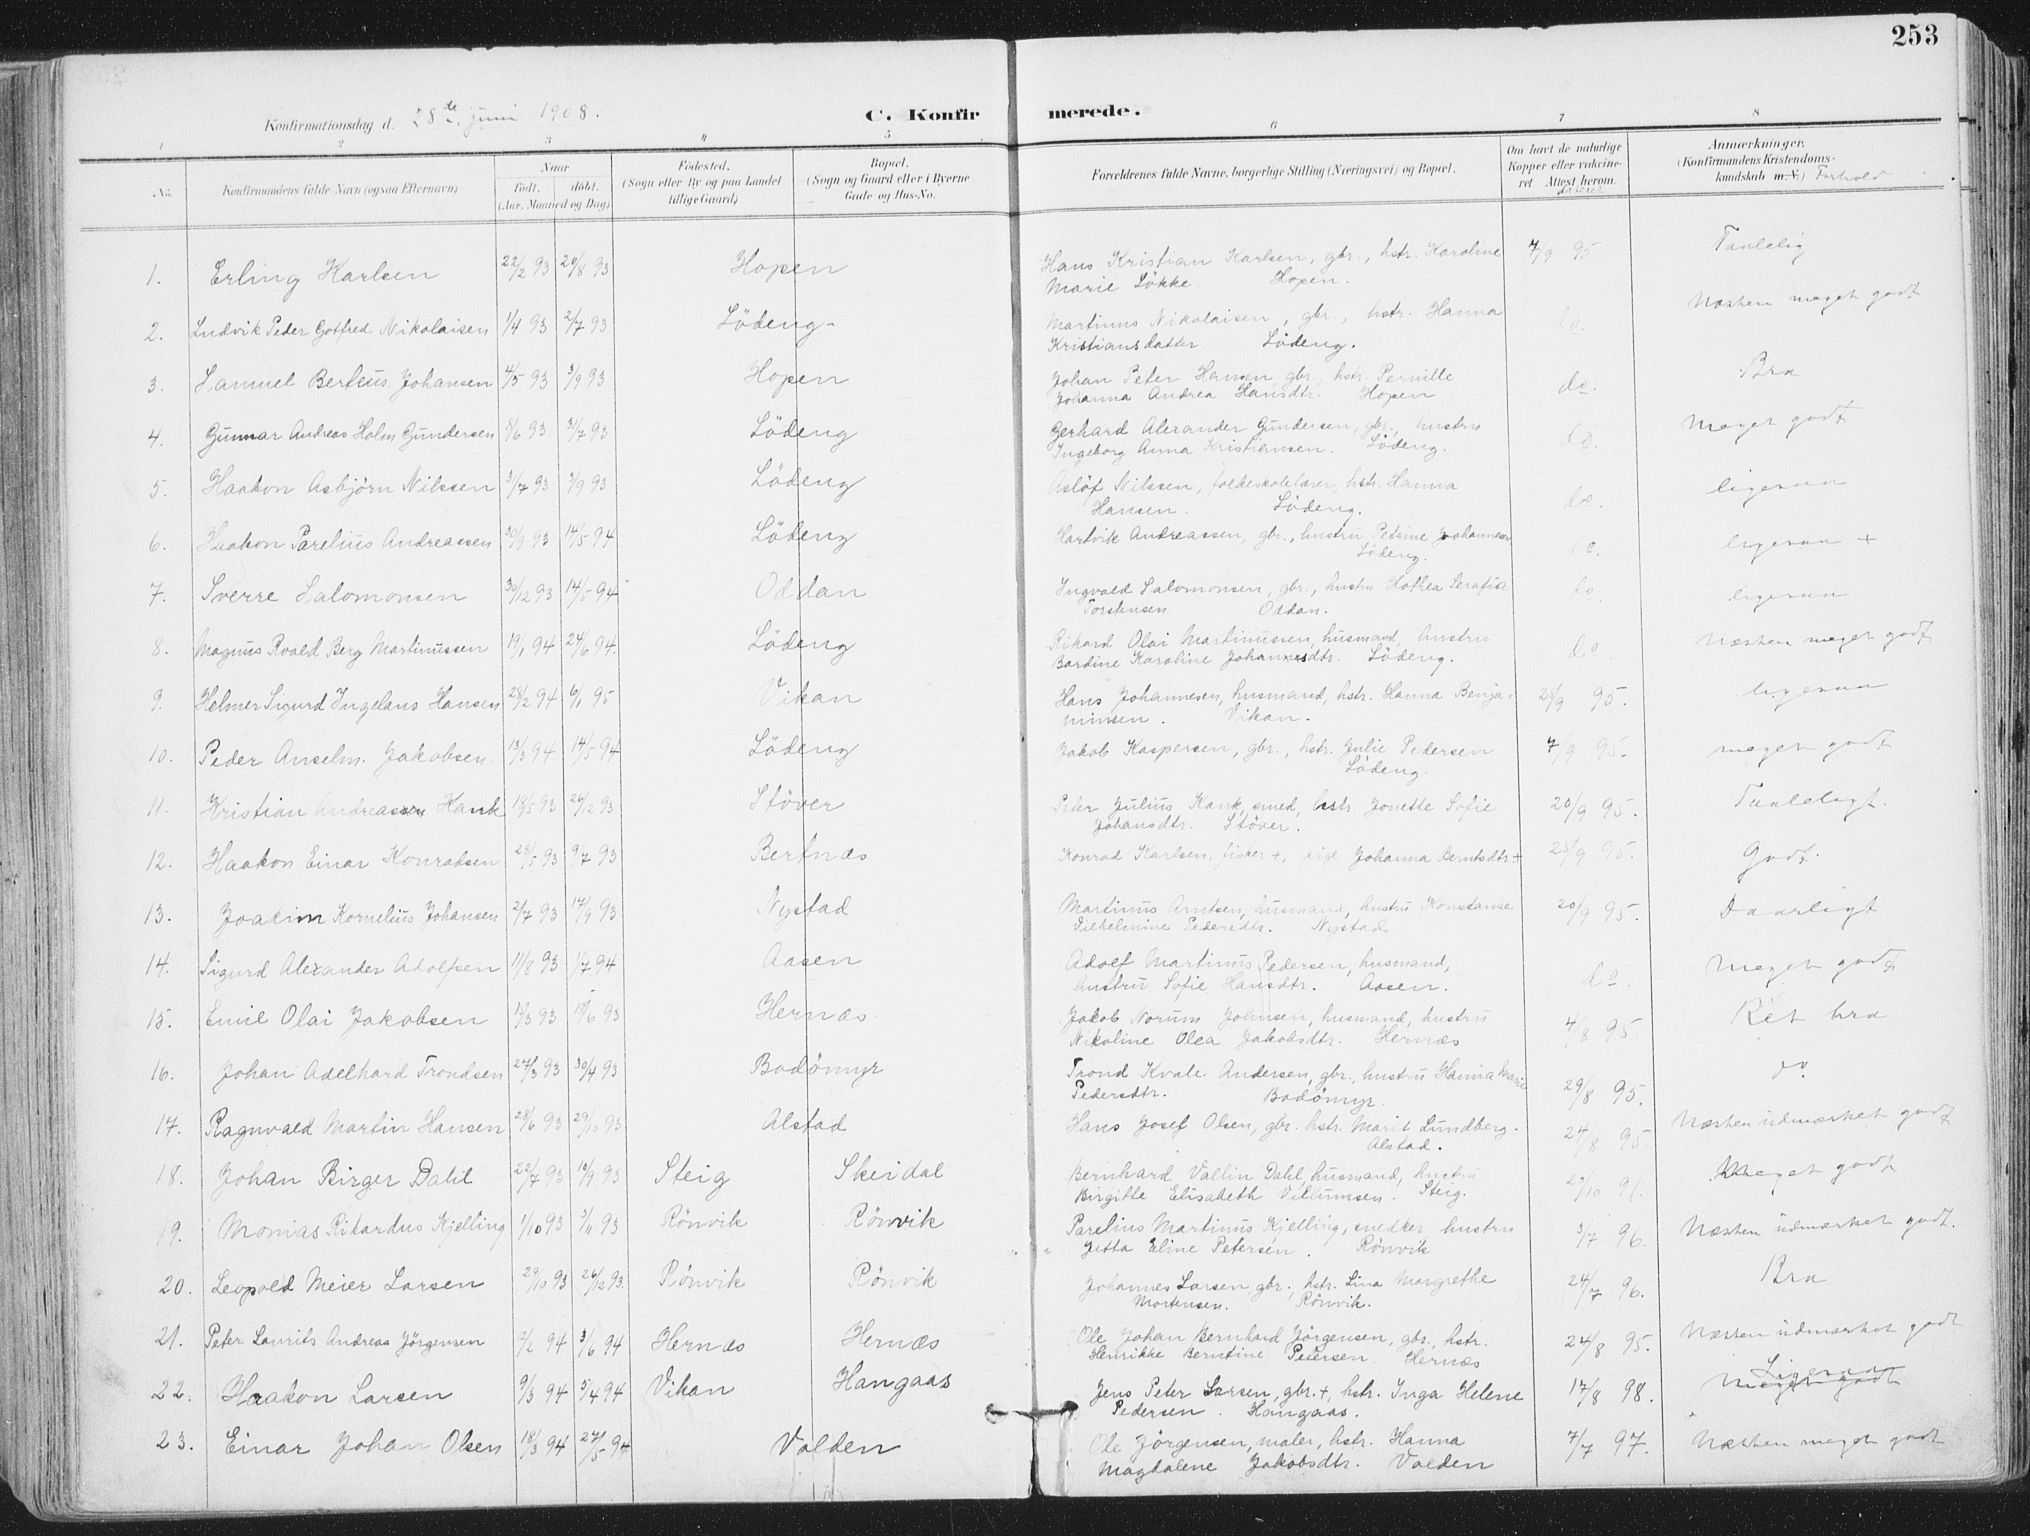 253
Konfirmationsdag d. 28de juni 1908.
C. Konfirmerede.
1 2 3 4 5 6 7 8
No.
Konfirmandens fulde Navn (ogsaa Efternavn)
Naar
født. døbt.
(Aar, Maaned og Dag)
Fødested.
(Sogn eller By og paa Landet
tillige Gaard)
Bopæl.
(Sogn og Gaard eller i Byerne
Gade og Hus-No.
Forældrenes fulde Navne, borgerlige Stilling (Næringsvei) og Bopæl.
Om havt de naturlige
Kopper eller vakcineret
Attest herom.
dateret
Anmærkninger.
(Konfirmandens Kristendoms-
kundskab m. V.) Forhold
1. Erling Karlsen 22/2 93 20/8 93 Hopen Hans Kristian Karlsen, gbr., hstr. Karoline 7/9 95 Taalelig
Marie Løkke Hopen.
2. Ludvik Peder Gotfred Nikolaisen 1/4 93 2/7 93 Lødeng. Martinus Nikolaisen, gbr., hstr. Hanna do. Næsten meget godt
Kristiansdatter Lødeng.
3. Samuel Berteus Johansen 4/5 93 3/9 93 Hopen Johan Peter Hansen, gbr., hstr. Pernille do. Bra
Johanna Andrea Hansdtr. Hopen
4. Gunnar Andreas Holm Gundersen 8/6 93 31/7 93 Lødeng Gerhard Alexander Gundersen, gbr., hustru do. Meget godt
Ingeborg Anna Kristiansen. Lødeng.
5. Haakon Asbjørn Nilssen 3/7 93 3/9 93 Lødeng Asløf Nilssen, folkeskolelærer, hstr. Hanna do. ligesaa
Hansen. Lødeng.
6. Haakon Parelius Andreassen 30/9 93 14/5 94 Lødeng Hartvik Andreassen, gbr., hustru Petrine Johannesen do. ligesaa +
Lødeng.
7. Sverre Salomonsen 30/12 93 14/5 94 Oddan Ingvald Salomonsen, gbr., hustru Hothea Serafia do. ligesaa
Torstensen Oddan.
8. Magnus Roald Berg Martinussen 19/1 94 24/6 94. Lødeng Rikard Olai Martinussen, husmand, hustru do. Næsten meget godt
Bardine Karoline Johannesdtr. Lødeng.
9. Helmer Sigurd Ingelaus Hansen 28/2 94 6/1 95 Vikan Hans Johannesen, husmand, hstr. Hanna Benja- 25/9 95. ligesaa
minsen. Vikan.
10. Peder Anselm Jakobsen 13/3 94 14/5 94 Lødeng Jakob Kaspersen, gbr., hstr. Julie Pedersen 7/9 95. meget godt
Lødeng.
11. Kristian Andreassen Hank 18/5 93 26/12 93 Støver Peter Julius Kank, smed, hstr. Jonette Sofie 20/9 95. Taaleligt.
Johansdtr. Støver.
12. Haakon Einar Konradsen 28/5 93 9/7 93 Bertnæs Konrad Karlsen, fisker +, pige Johanna Berntsdtr. + 25/9 95. Godt.
13. Joakim Kornelius Johansen 2/7 93 17/9 93 Nystad Martinus Arntsen, husmand, hustru Konstanse 20/9 95. Daarligt
Vilhelmine Pedersdtr. Nystad
14. Sigurd Alexander Adolfsen 11/8 93 1/7 94 Aasen Adolf Martinus Pedersen, husmand, do. Meget godt
hustru Sofie Hansdtr. Aasen.
15. Emil Olai Jakobsen 14/3 93 18/6 93 Hernæs Jakob Norum Johnsen, husmand, hustru 4/8 95. Ret bra
Nikoline Olea Jakobsdtr. Hernæs
16. Johan Adelhard Trondsen 24/3 93 30/4 93 Bodømyr Trond Kvale Andersen, gbr., hustru Hanna Marie 29/8 95. do.
Pedersdtr. Bodømyr.
17. Ragnvald Martin Hansen 28/6 93 29/10 93 Alstad Hans Josef Olsen, gbr. hstr. Marit Lundberg. 24/8 95 Næsten udmærket godt
Alstad.
18. Johan Birger Dahl 22/7 93 10/9 93 Steig Skeidal Bernhard Vallin Dahl, husmand, hustru 29/10 91. Meget godt
Birgitte Elisabeth Villumsen. Steig.
19. Monias Rikardus Kjelling 1/10 93 5/11 93 Rønvik Rønvik Parelius Martinus Kjelling, snedker, hustru 3/7 96. Næsten udmærket godt.
Jetta Eline Petersen. Rønvik
20. Leopold Meier Larsen 29/10 93 26/12 93. Rønvik Rønvik Johannes Larsen, gbr., hstr. Lina Margrethe 24/7 96. Bra
Mortensen. Rønvik.
21. Peter Laurits Andreas Jørgensen 2/2 94 3/6 94 Hernæs Hernæs Ole Johan Bernhard Jørgensen, gbr., hstr. 24/8 95. Næsten udmærket godt
Henrikke Berntine Petersen. Hernæs
22. Haakon Larsen 9/3 94 5/4 94 Vikan Hangaas Jens Peter Larsen, gbr. +, hstr. Inga Helene 17/8 98. Ligesaa
Meget godt
Pedersen. Hangaas.
23. Einar Johan Olsen 18/3 94 27/5 94 Valden Ole Jørgensen, maler, hstr. Hanna 7/7 97. Næsten meget godt
Magdalene Jakobsdtr. Valden